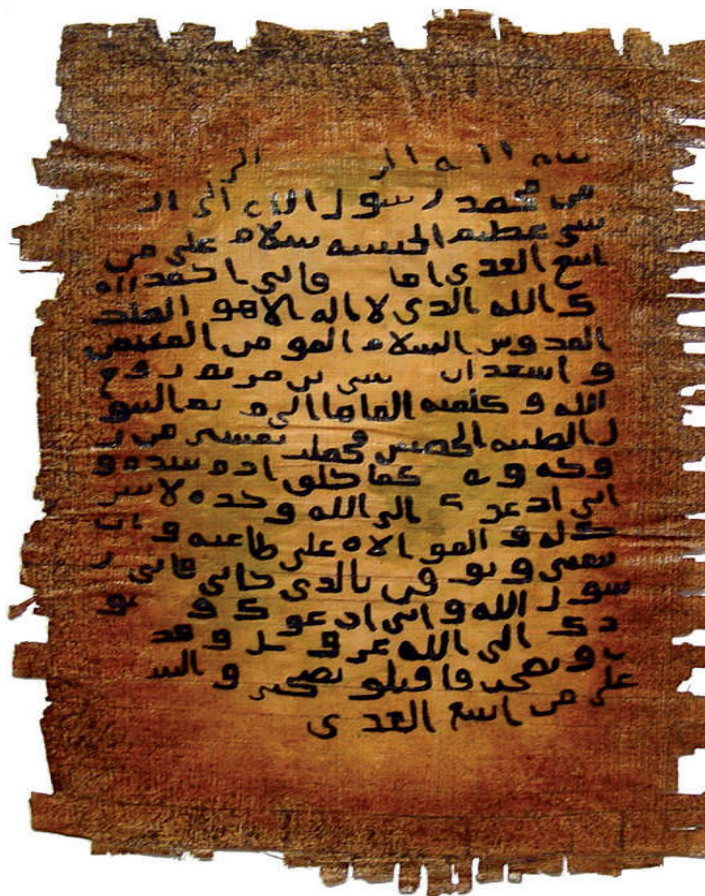 بسم الله الر الر
من محمد رسول الله الى ال
شي عظيم الحبشه سلام على من
اتبع الهدى اما فاني احمد اليه
ك الله الذي لا اله الا هو الملك
القدوس السلام المومن المهيمن
و اشهد ان سى بن مريم روح
الله و كلمته القاها الى م يم البتو
ل الطيبه الحصينه فحملت بعيسى من ر
وحه و ه كما خلق ادم بيده و
اني ادعو ك الى الله وحده لا شر
كله و الموالاه على طاعته و ان
تتبعني و تو قن بالذي جاني فاني ر
سول الله و اني ادعوك و نو
دك الى الله عز و جل و قد
ب و نصحت فاقبلو نصيحتي و السـ
على من اتبع الهدى